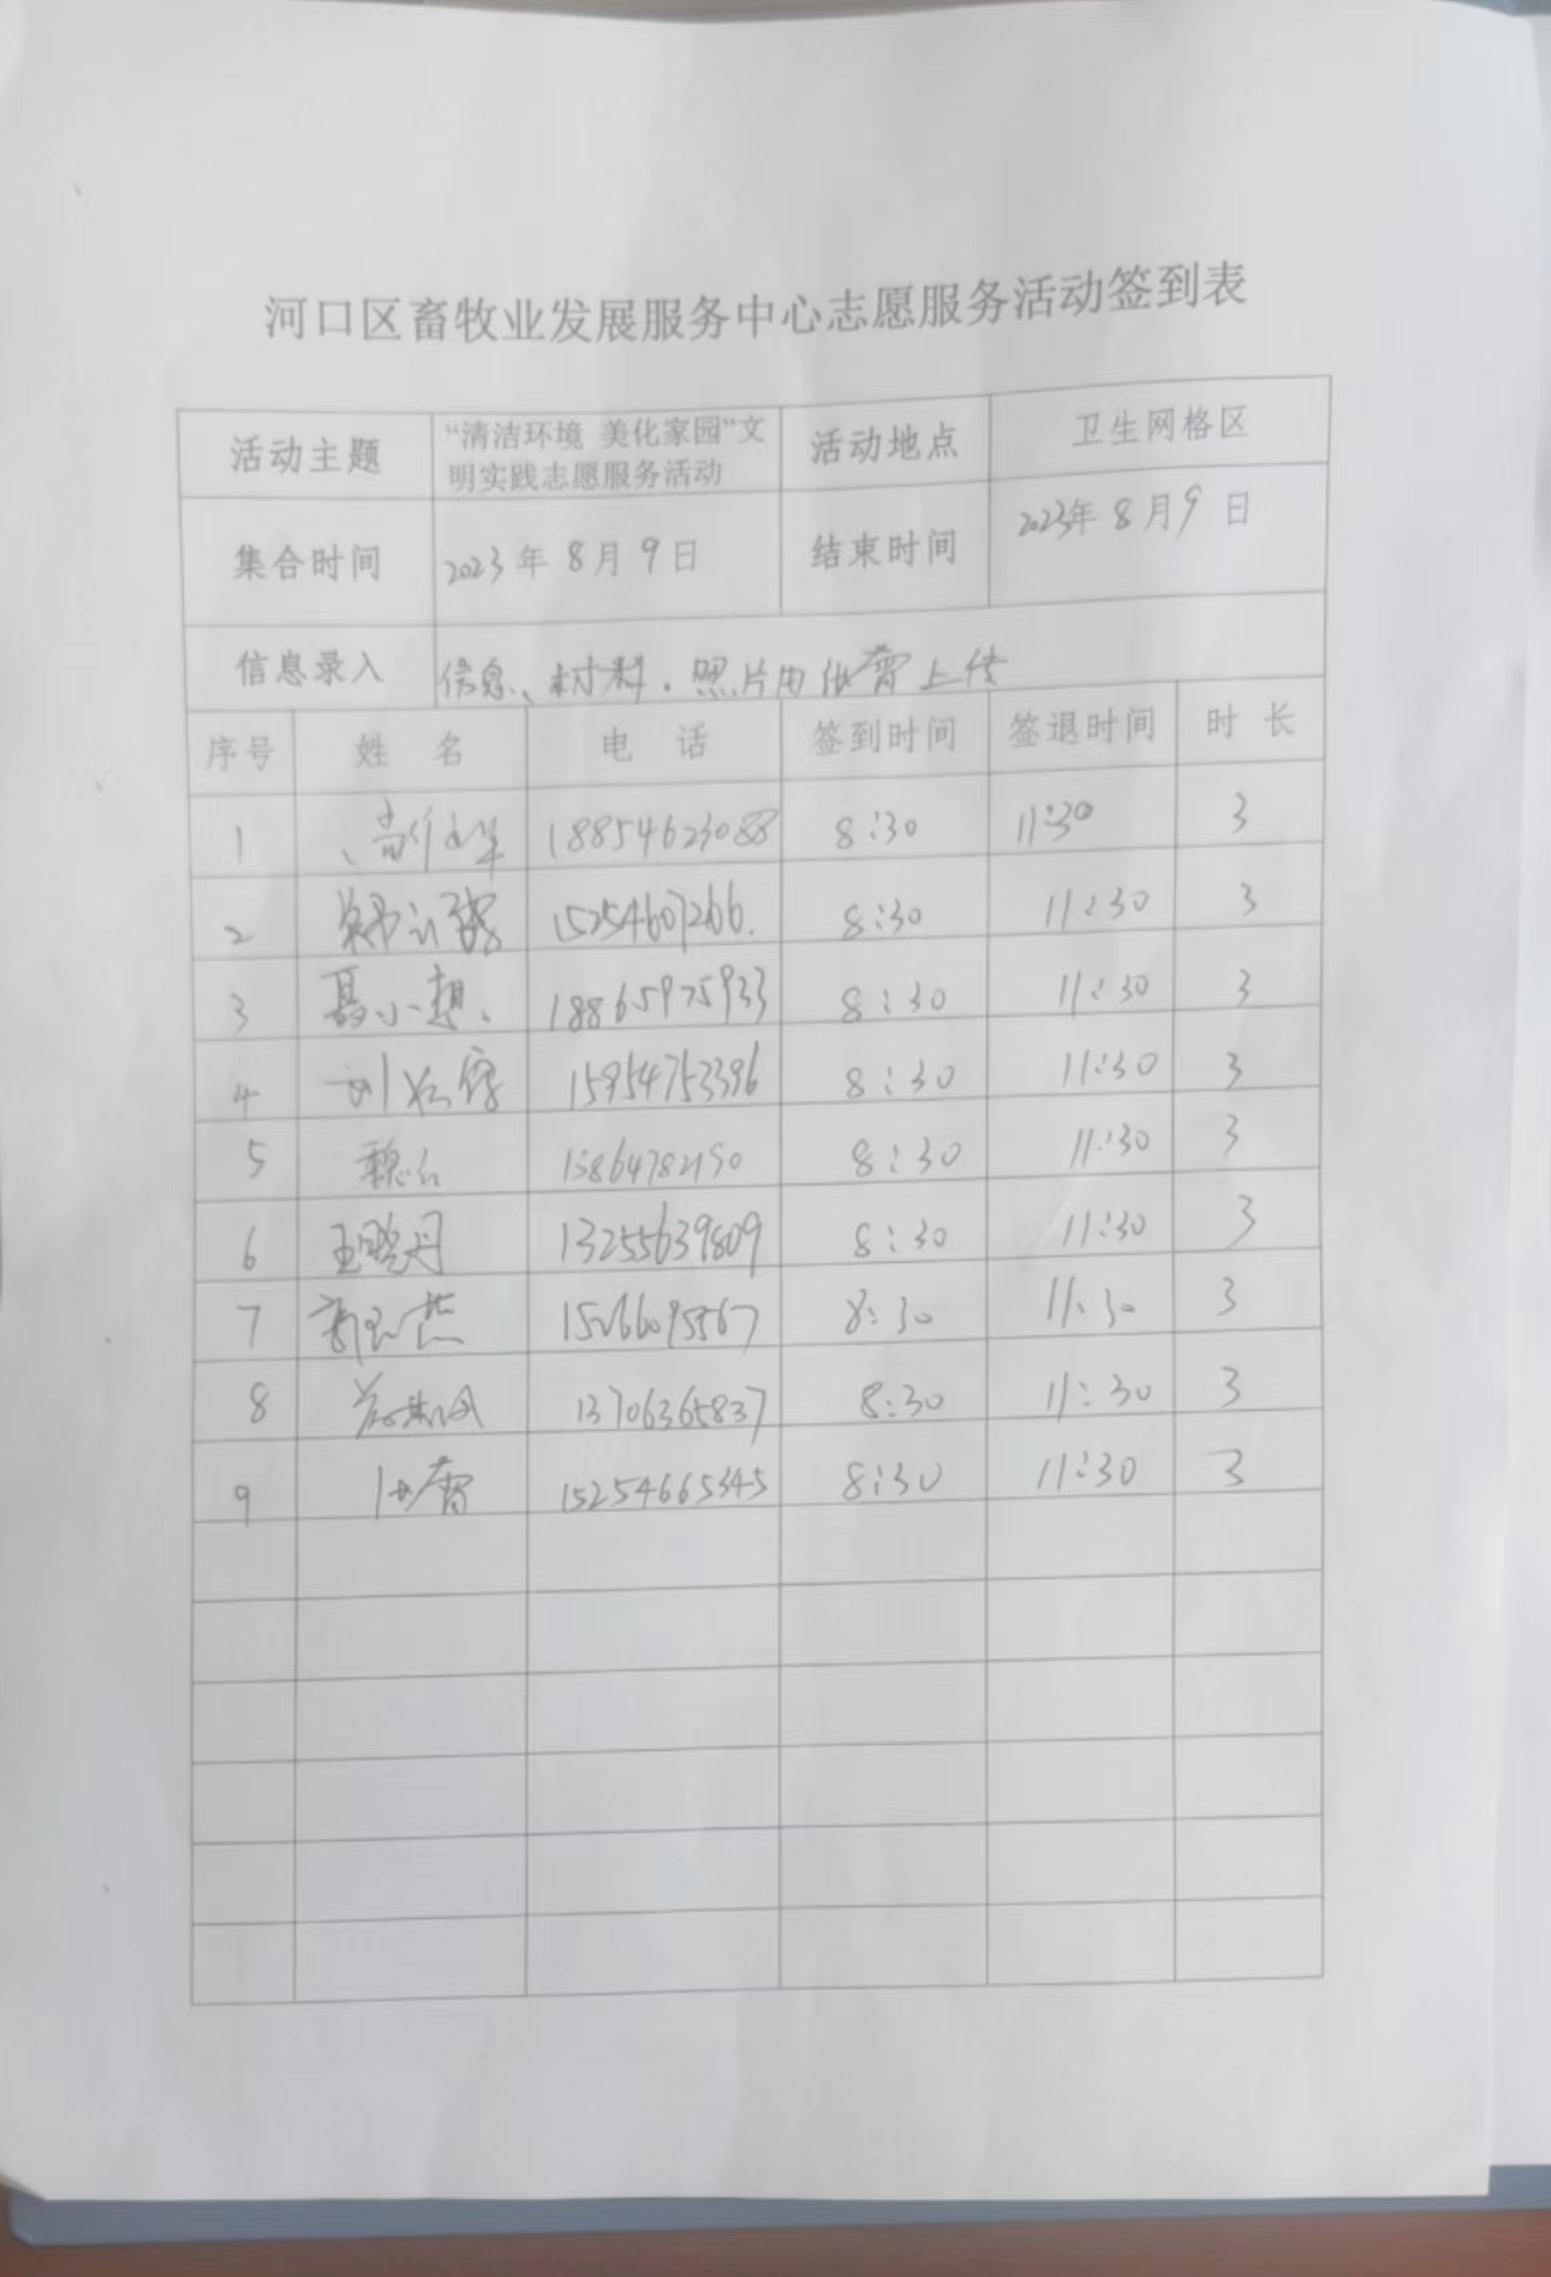 河口区畜牧业发展服务中心志愿服务活动签到表
活动主题 “清洁环境 美化家园”文明实践志愿服务活动 活动地点 卫生网格区
集合时间 2023年8月9日 结束时间 2023年8月9日
信息录入 信息、材料、照片由 上传
序号 姓名 电话 签到时间 签退时间 时长
1 18854623088 8:30 11:30 3
2 15254607266. 8:30 11:30 3
3 聂小想 18865975933 8:30 11:30 3
4 15954753396 8:30 11:30 3
5 15864782190 8:30 11:30 3
6 王晓丹 13255639809 8:30 11:30 3
7 15266095567 8:30 11:30 3
8 13706365837 8:30 11:30 3
9 15254665345 8:30 11:30 3